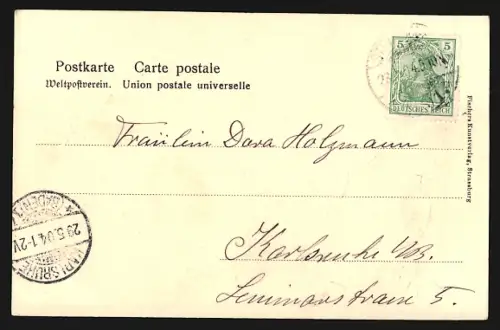 Postkarte Carte postale
Weltpostverein. Union postale universelle
5 5
DEUTSCHES REICH
Fischers Kunstverlag, Strassburg
Fräulein Dora Holzmann
KARLSRUHE
29.5.04.1-2V.
(BADEN)
Karlsruhe i/B.
5.